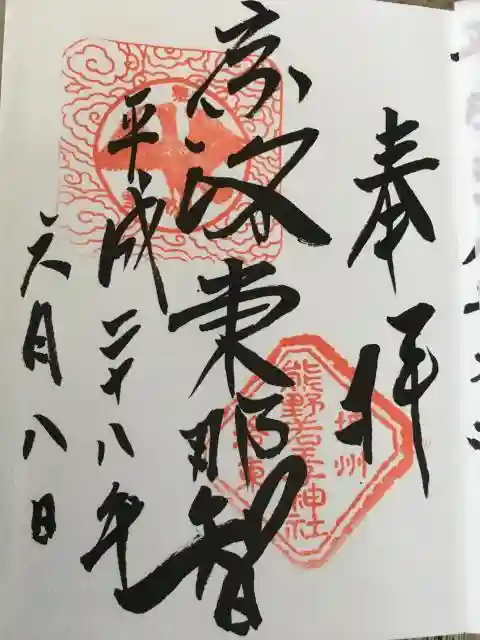 奉拝
京洛東那智
熊野若王子神社
平成二十八年
六月八日